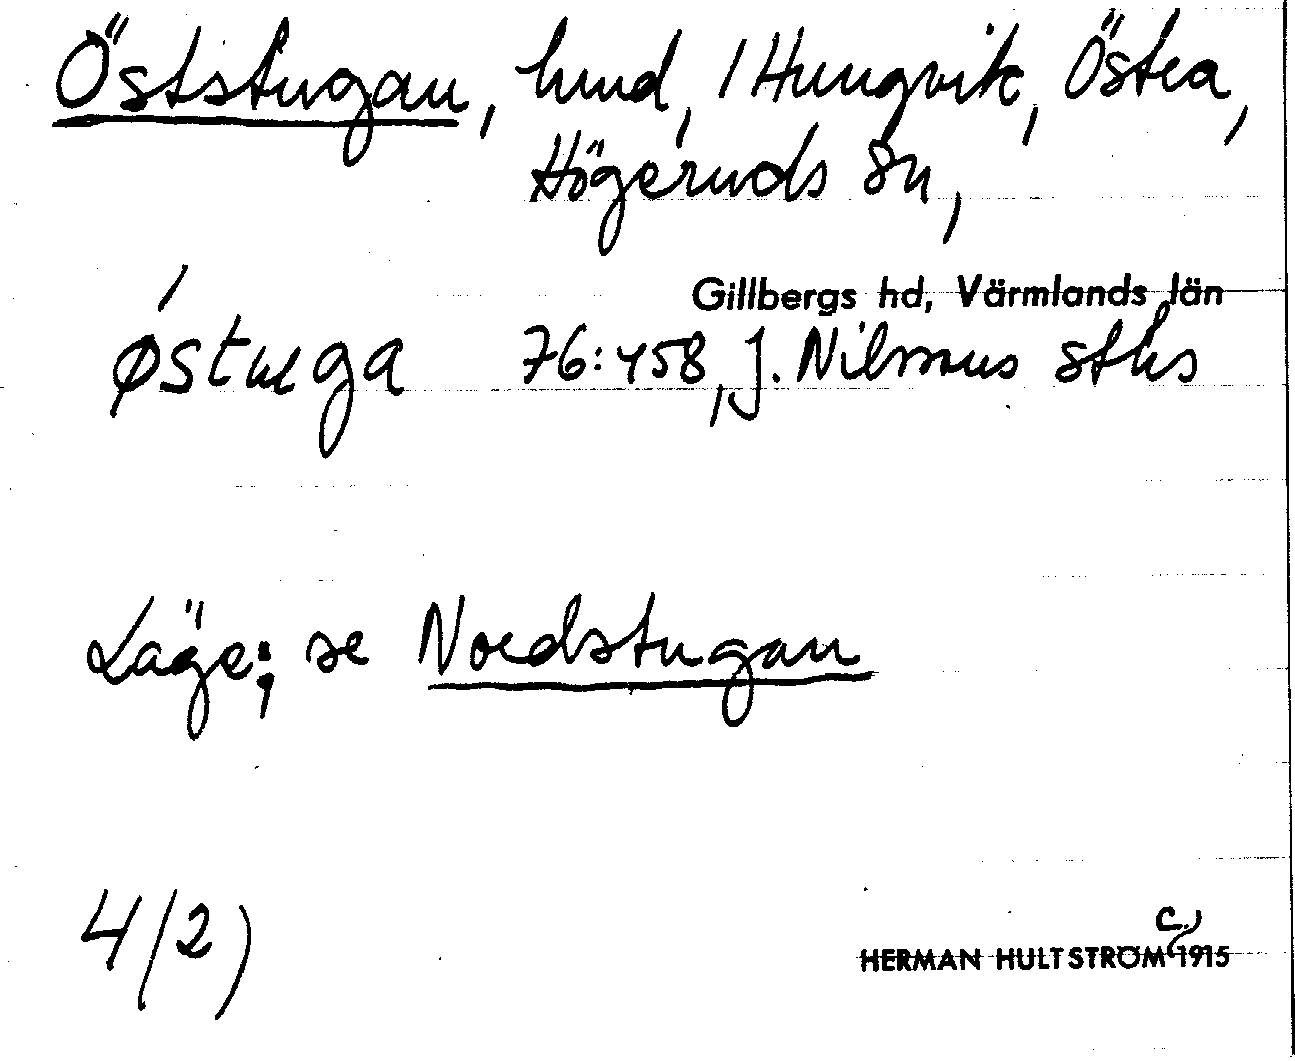 Öststugan, hmd, 1 Hungvik, Östra,
Högeruds sn,
Gillbergs hd, Värmlands län
østuga 76:458, J. Nilssons sths
Läge; se Nordstugan
4/2)
c.
HERMAN HULTSTRÖM 1915